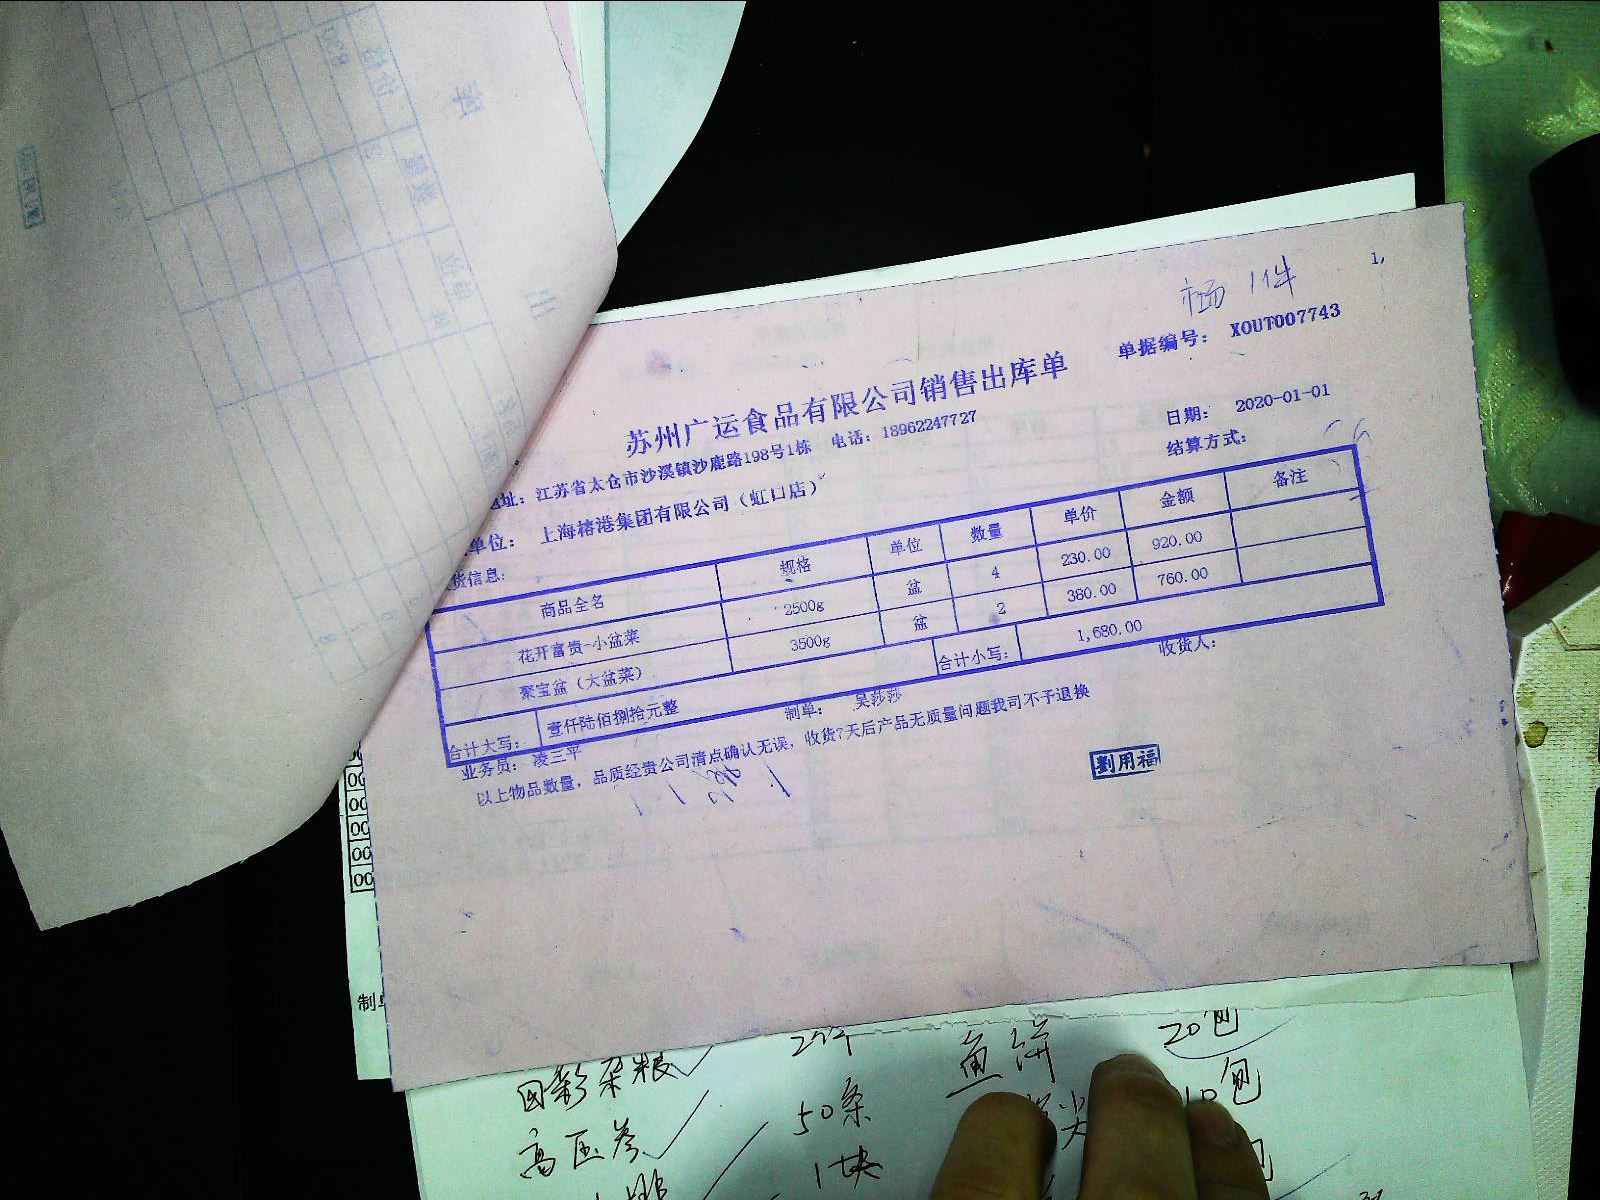 1件
1,
单据编号: XOUT007743
苏州广运食品有限公司销售出库单
日期: 2020-01-01
地址: 江苏省太仓市沙溪镇沙鹿路198号1栋 电话: 18962247727
结算方式:
单位: 上海榕港集团有限公司(虹口店)
货信息:
商品全名 规格 单位 数量 单价 金额 备注
花开富贵-小盆菜 2500g 盆 4 230.00 920.00
聚宝盆(大盆菜) 3500g 盆 2 380.00 760.00
合计大写: 壹仟陆佰捌拾元整 合计小写: 1,680.00
业务员: 凌三平 制单: 吴莎莎 收货人:
以上物品数量,品质经贵公司清点确认无误,收货7天后产品无质量问题我司不予退换
劉用福
00
00
00
00
00
制单
杂粮 鱼饼 20包
高压参 50条 尖 10包
1块